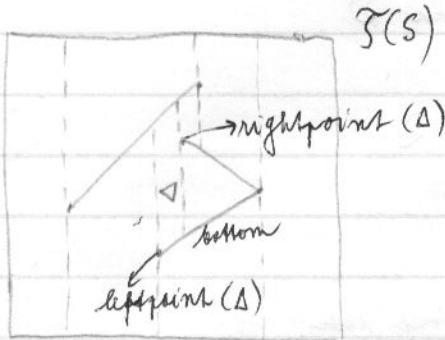 𝒯(S)
rightpoint (Δ)
Δ
bottom
leftpoint (Δ)